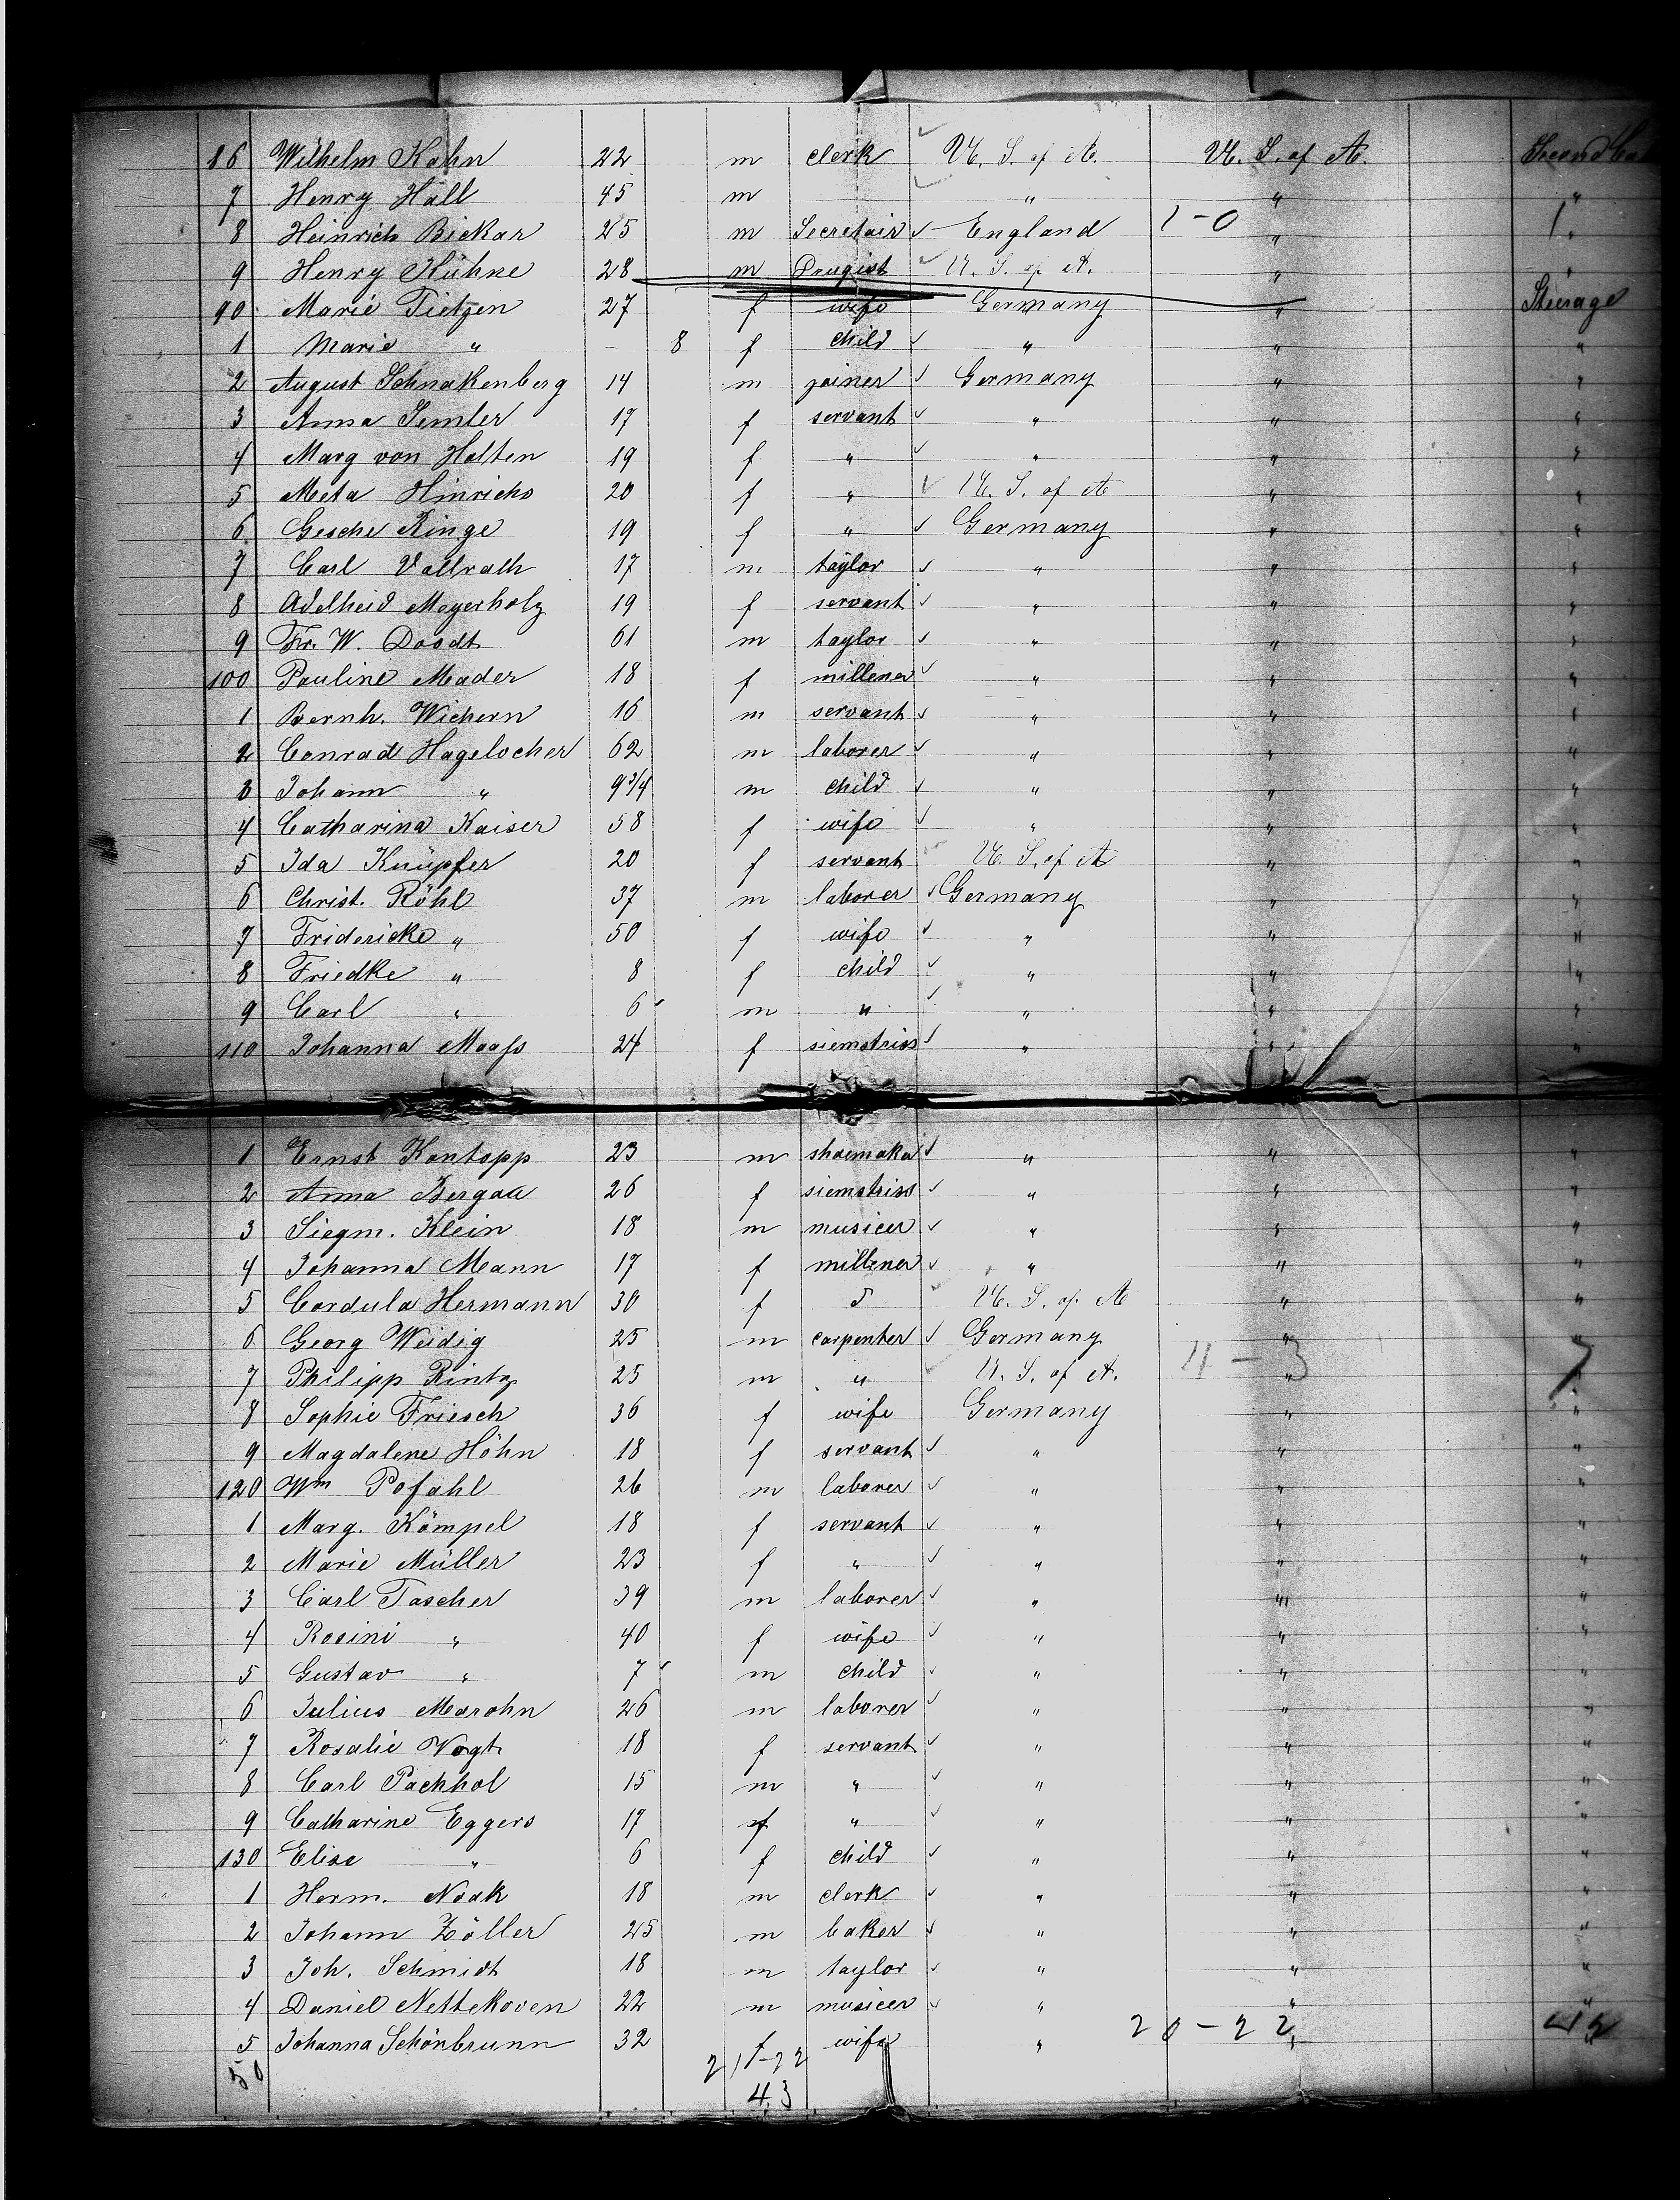 86 Wilhelm Kahn 22 m clerk U. S. of A. U. S. of A. Second
7 Henry Häll 45 m " " "
8 Heinrich Bickar 25 m Secretair England 1-0 " 1 "
9 Henry Kühne 28 m Drugist U. S. of A. " "
90 Marie Tietzen 27 f wife Germany " Steerage
1 Marie " - 8 f child " " "
2 August Schnakenberg 14 m joiner Germany " "
3 Anna Semler 17 f servant " " "
4 Marg von Holten 19 f " " " "
5 Meta Hinrichs 20 f " U. S. of A " "
6 Gesche Ringe 19 f " Germany " "
7 Carl Vollrath 17 m taylor " " "
8 Adelheid Meyerholz 19 f servant " " "
9 Fr. W. Doodt 61 m taylor " " "
100 Pauline Mader 18 f millener " " "
1 Bernh. Wichern 16 m servant " " "
2 Conrad Hagelocher 62 m laborer " " "
3 Johann " 9 3/4 m child " " "
4 Catharina Kaiser 58 f wife " " "
5 Ida Knüpfer 20 f servant U. S. of A " "
6 Christ. Röhl 37 m laborer Germany " "
7 Fridericke " 50 f wife " " "
8 Friedke " 8 f child " " "
9 Carl " 6 m " " " "
110 Johanna Maass 24 f siemstriss " " "
1 Ernst Kontopp 23 m shoemaker " " "
2 Anna Bergau 26 f siemstriss " " "
3 Siegm. Klein 18 m musicer " " "
4 Johanna Mann 17 f millener " " "
5 Cordula Hermann 30 f d U. S. of A " "
6 Georg Weidig 25 m carpenter Germany " "
7 Philipp Rintz 25 m " U. S. of A. 4-3 " 7 "
8 Sophie Friesch 36 f wife Germany " "
9 Magdalene Höhn 18 f servant " " "
120 Wm Pofahl 26 m laborer " " "
1 Marg. Kömpel 18 f servant " " "
2 Marie Müller 23 f " " " "
3 Carl Tascher 39 m laborer " " "
4 Rosini " 40 f wife " " "
5 Gustav " 7 m child " " "
6 Julius Marohn 26 m laborer " " "
7 Rosalie Vogt 18 f servant " " "
8 Carl Pachhol 15 m " " " "
9 Catharine Eggers 17 f " " " "
130 Elise " 6 f child " " "
1 Herm. Noak 18 m clerk " " "
2 Johann Zöller 25 m baker " " "
3 Joh. Schmidt 18 m taylor " " "
4 Daniel Nettekoven 22 m musicer " " "
5 Johanna Schönbrunn 32 f wife " 20-22 "
50 21-22
43